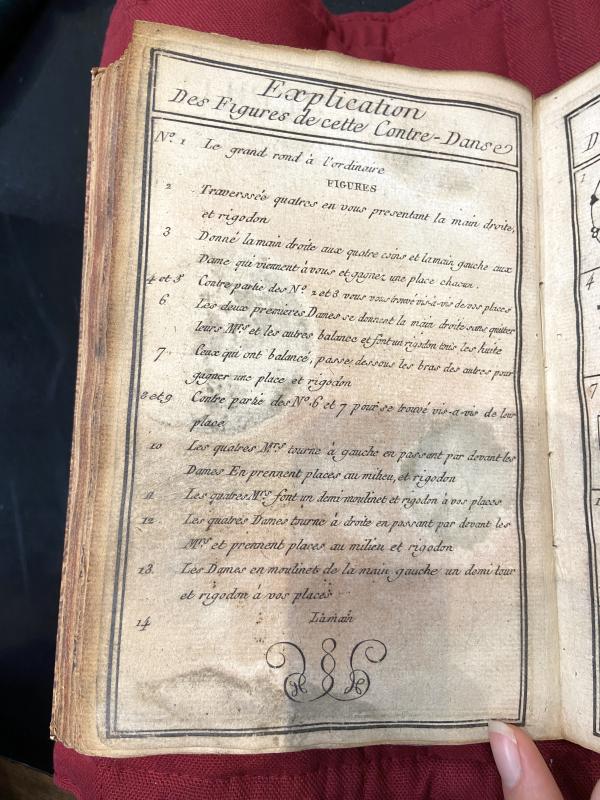 Explication
Des Figures de cette Contre-Danse
No. 1 Le grand rond à l'ordinaire
FIGURES
2 Traverssée quatres en vous presentant la main droite,
et rigodon
3 Donné la main droite aux quatre coins et la main gauche aux
Dame qui viennent à vous et gagnez une place chacun.
4 et 5 Contre partie des No. 2 et 3 vous vous trouvé vis-à-vis de vos places
6 Les deux premieres Dames se donnent la main droite sans quitter
leurs Mrs et les autres balance et font un rigodon tous les huite
7 Ceux qui ont balancé, passe dessous les bras des autres pour
gagner une place et rigodon
8 et 9 Contre partie des No. 6 et 7 pour se trouvé vis-a-vis de leur
place
10 Les quatres Mrs tourne à gauche en passant par devant les
Dames En prennent places au milieu, et rigodon
11 Les quatres Mrs font un demi moulinet et rigodon à vos places
12 Les quatres Dames tourne à droite en passant par devant les
Mrs et prennent places au milieu et rigodon
13 Les Dames en moulinets de la main gauche un demi tour
et rigodon à vos places
14 La main
D
1
4
7